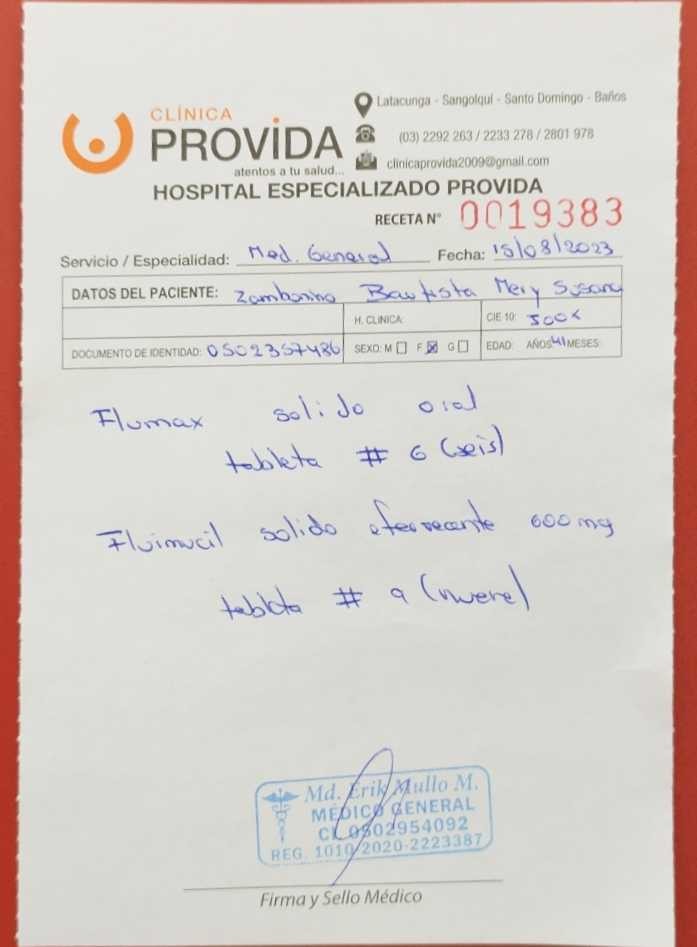 CLÍNICA
PROVIDA
atentos a tu salud...
Latacunga - Sangolquí - Santo Domingo - Baños
(03) 2292 263 / 2233 278 / 2801 978
clinicaprovida2009@gmail.com
HOSPITAL ESPECIALIZADO PROVIDA
RECETA N° 0019383
Servicio / Especialidad: Med. General Fecha: 15/08/2023
DATOS DEL PACIENTE: Zambonino Bautista Mery Susana
H. CLINICA: CIE 10: J00X
DOCUMENTO DE IDENTIDAD: 0502357486 SEXO: M F G EDAD: AÑOS 41 MESES:
Flumax solido oral
tableta # 6 (seis)
Fluimucil solido efervecente 600 mg
tableta # 9 (nueve)
Md. Erik Mullo M.
MÉDICO GENERAL
CI. 0502954092
REG. 1010-2020-2223387
Firma y Sello Médico